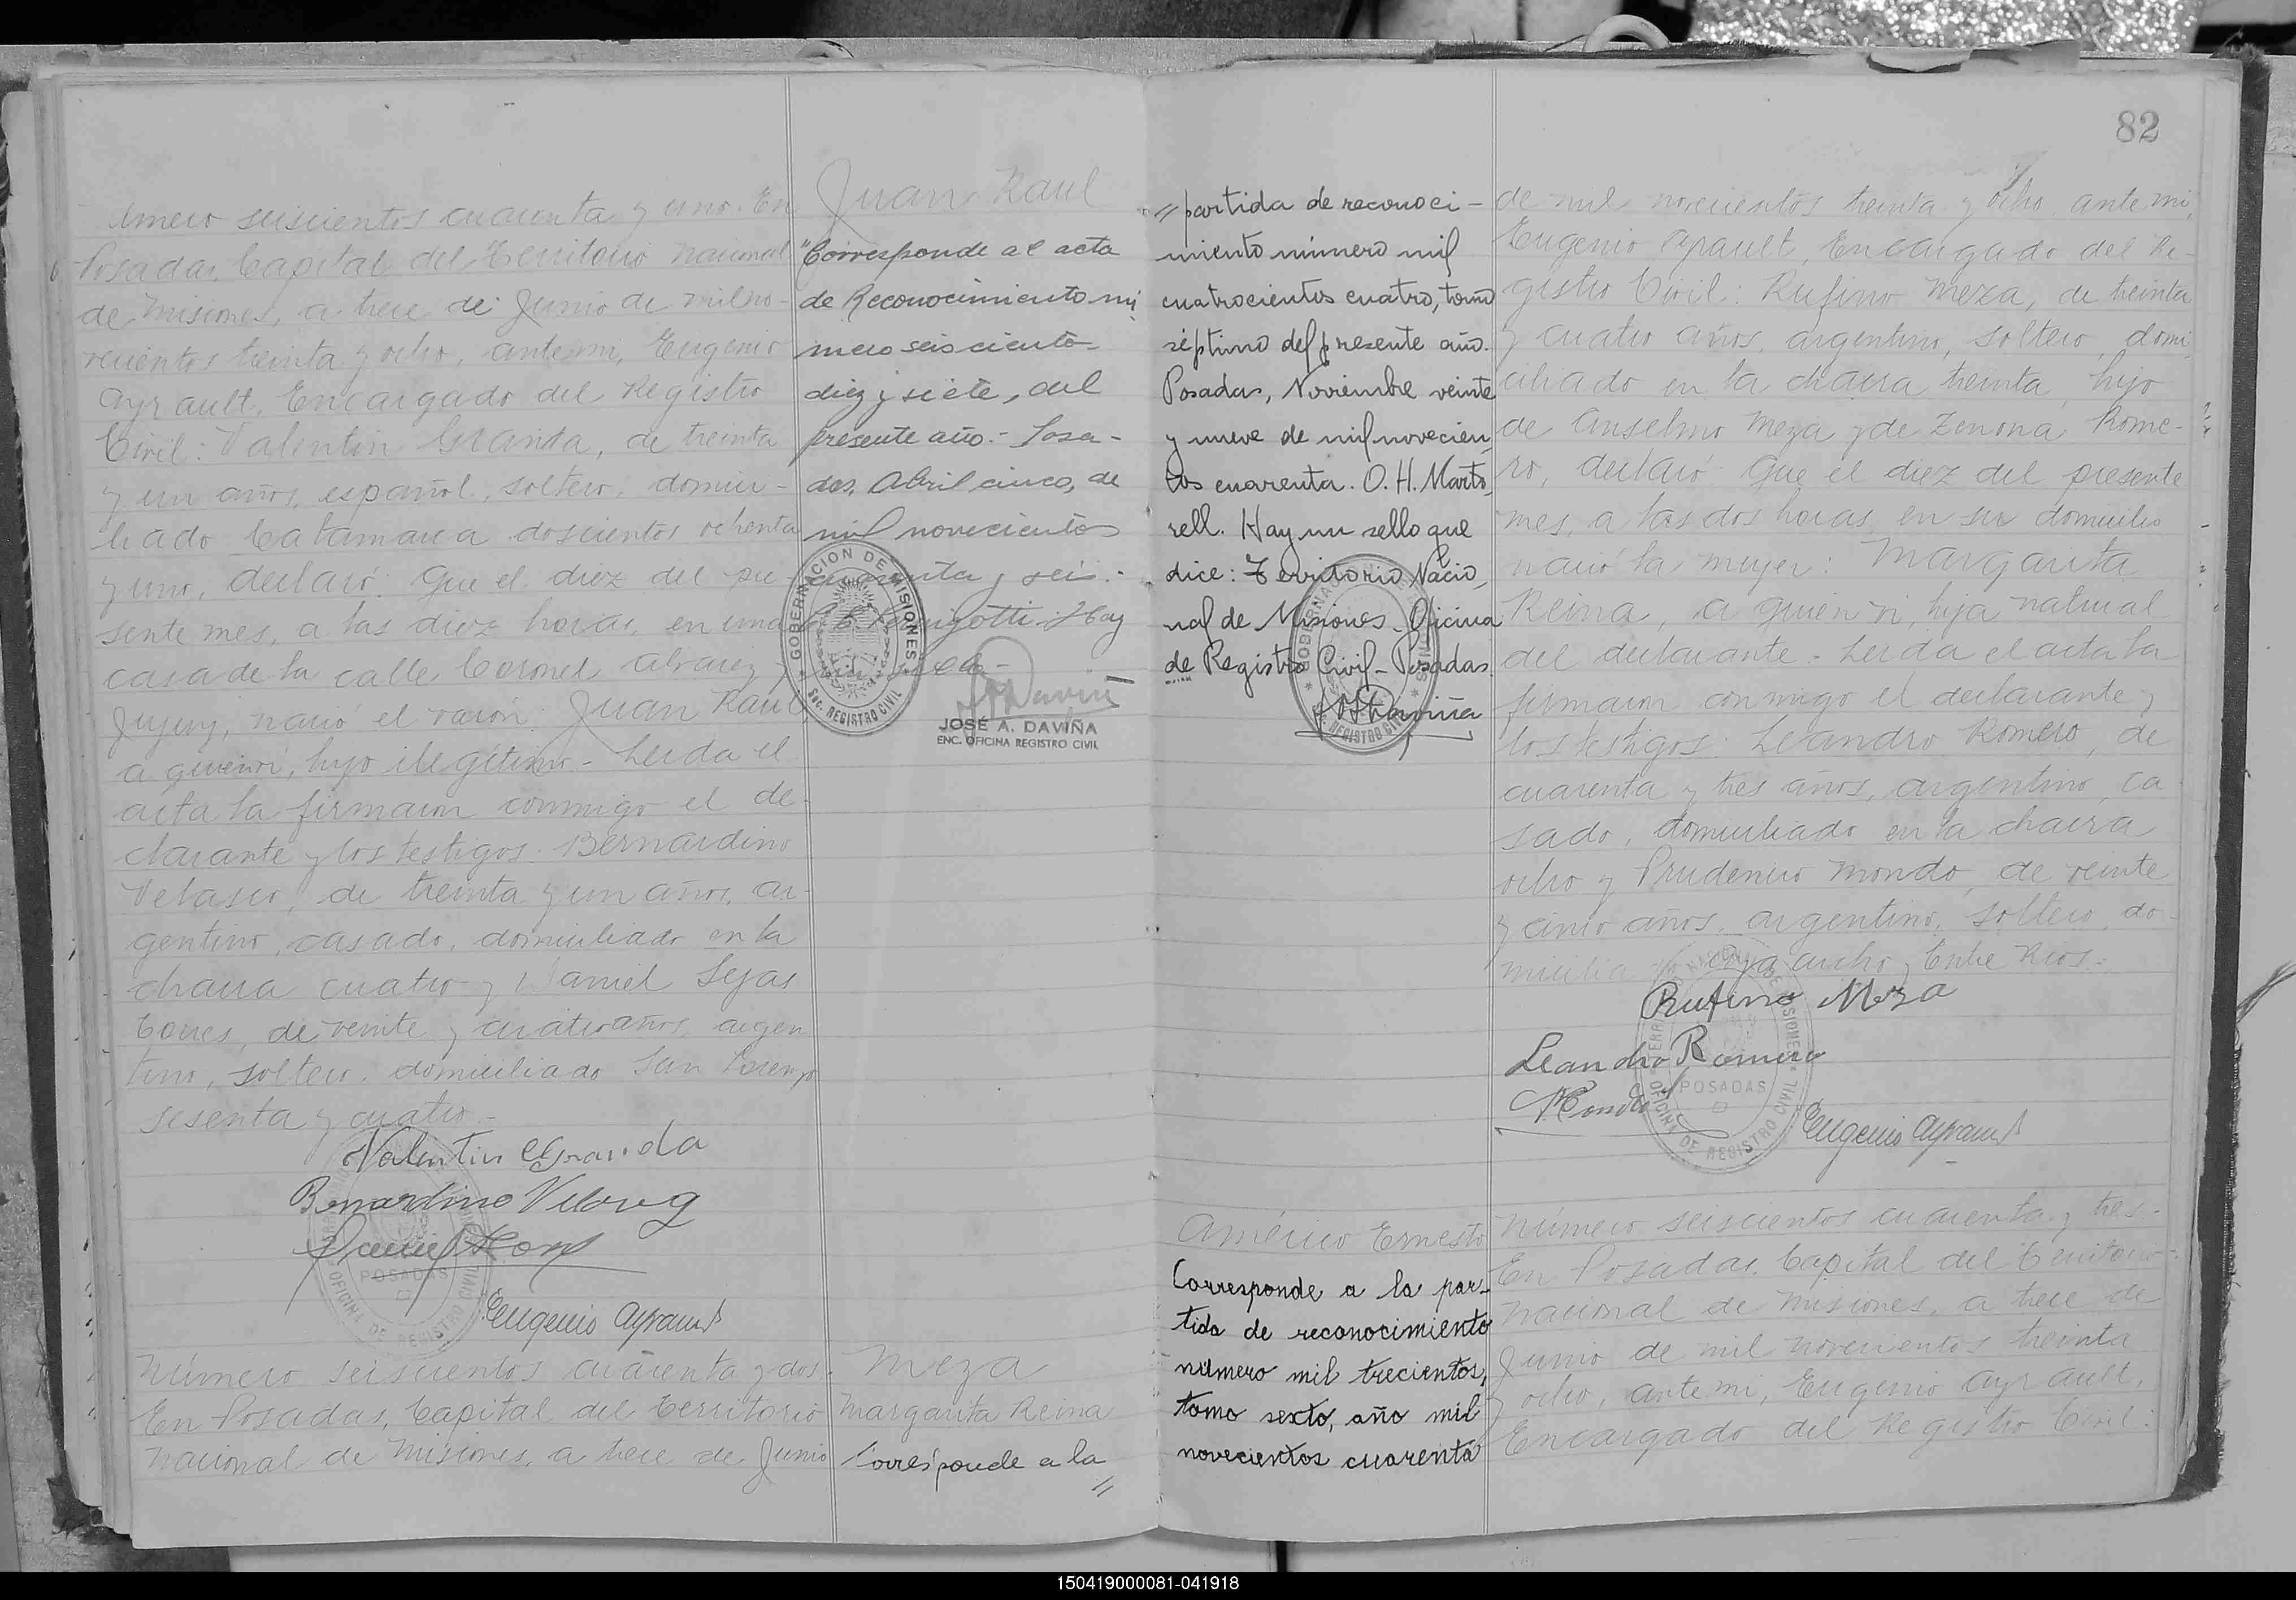 82
Juan Raul
úmero seiscientos cuarenta y uno. En
Posadas, Capital del Territorio Nacional
de Misiones, a trece de Junio de mil no-
vecientos treinta y ocho, ante mi, Eugenio
Ayrault, Encargado del Registro
Civil: Valentin Granda, de treinta
y un años, español, soltero, domici-
liado Catamarca doscientos ochenta
y uno, declaró: Que el diez del pre-
sente mes, a las diez horas, en una
casa de la calle Coronel Alvarez y
Jujuy, nació el varón: Juan Raul
a quien vi, hijo ilegítimo.- Leida el
acta la firmaron conmigo el de-
clarante y los testigos: Bernardino
Velasco, de treinta y un años, ar-
gentino, casado, domiciliado en la
chacra cuatro y Daniel Sejas
Torres, de veinte y cuatro años, argen
tino, soltero, domiciliado San Lorenzo
sesenta y cuatro.-
Valentin Granda
Bernardino
Eugenio Ayrault
POSADAS
OFICINA DE REGISTRO CIVIL
"Corresponde al acta
de Reconocimiento nú
mero seis ciento
diez y siete, del
presente año.- Posa-
das, Abril cinco, de
mil novecientos
cuarenta y seis.-
Hay
un sello.-
GOBERNACION DE MISIONES
SEC. REGISTRO CIVIL
JOSÉ A. DAVIÑA
ENC. OFICINA REGISTRO CIVIL
Número seiscientos cuarenta y dos.
En Posadas, Capital del Territorio
Nacional de Misiones, a trece de Junio
Meza
Margarita Reina
Corresponde a la
//
// partida de reconoci-
miento número mil
cuatrocientos cuatro, tomo
séptimo del presente año.
Posadas, Noviembre veinte
y nueve de mil novecien
tos cuarenta. O. H. Marto,
rell. Hay un sello que
dice: Territorio Nacio,
nal de Misiones - Oficina
de Registro Civil - Posadas.
Daviña
de mil novecientos treinta y ocho, ante mi,
Eugenio Ayrault, Encargado del Re-
gistro Civil: Rufino Meza, de treinta
y cuatro años, argentino, soltero, domi
ciliado en la chacra treinta, hijo
de Anselmo Meza y de Zenona Rome-
ro, declaró: Que el diez del presente
mes, a las dos horas, en su domicilio
nació la mujer: Margarita
Reina, a quien vi, hija natural
del declarante.- Leida el acta la
firmaron conmigo el declarante y
los testigos: Leandro Romero, de
cuarenta y tres años, argentino, ca
sado, domiciliado en la chacra
ocho y Prudencio Mondo, de veinte
y cinco años, argentino, soltero, do-
micilia Ayacucho y Entre Rios.-
Rufino Meza
Leandro Romero
P. Mondo
Eugenio Ayrault
POSADAS
OFICINA DE REGISTRO CIVIL
Américo Ernesto
Corresponde a la par-
tida de reconocimiento
número mil trecientos,
tomo sexto, año mil
novecientos cuarenta
Número seiscientos cuarenta y tres.-
En Posadas, Capital del Territorio
Nacional de Misiones, a trece de
Junio de mil novecientos treinta
y ocho, ante mi, Eugenio Ayrault,
Encargado del Registro Civil:
150419000081-041918